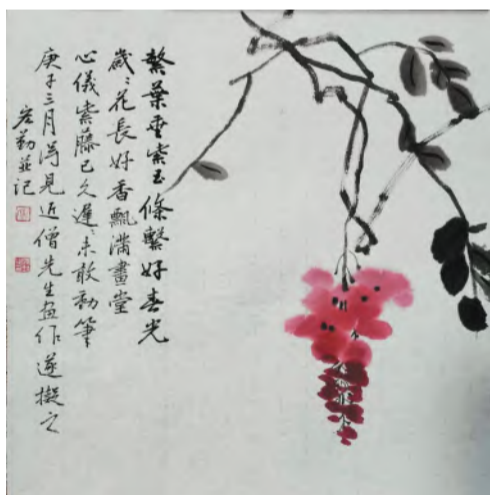 繁葉垂紫玉條繫好春光
歲〻花長好香飄滿畫堂
心儀紫藤已久遲〻未敢動筆
庚子三月得見近僧先生画作遂擬之
宏勤並记